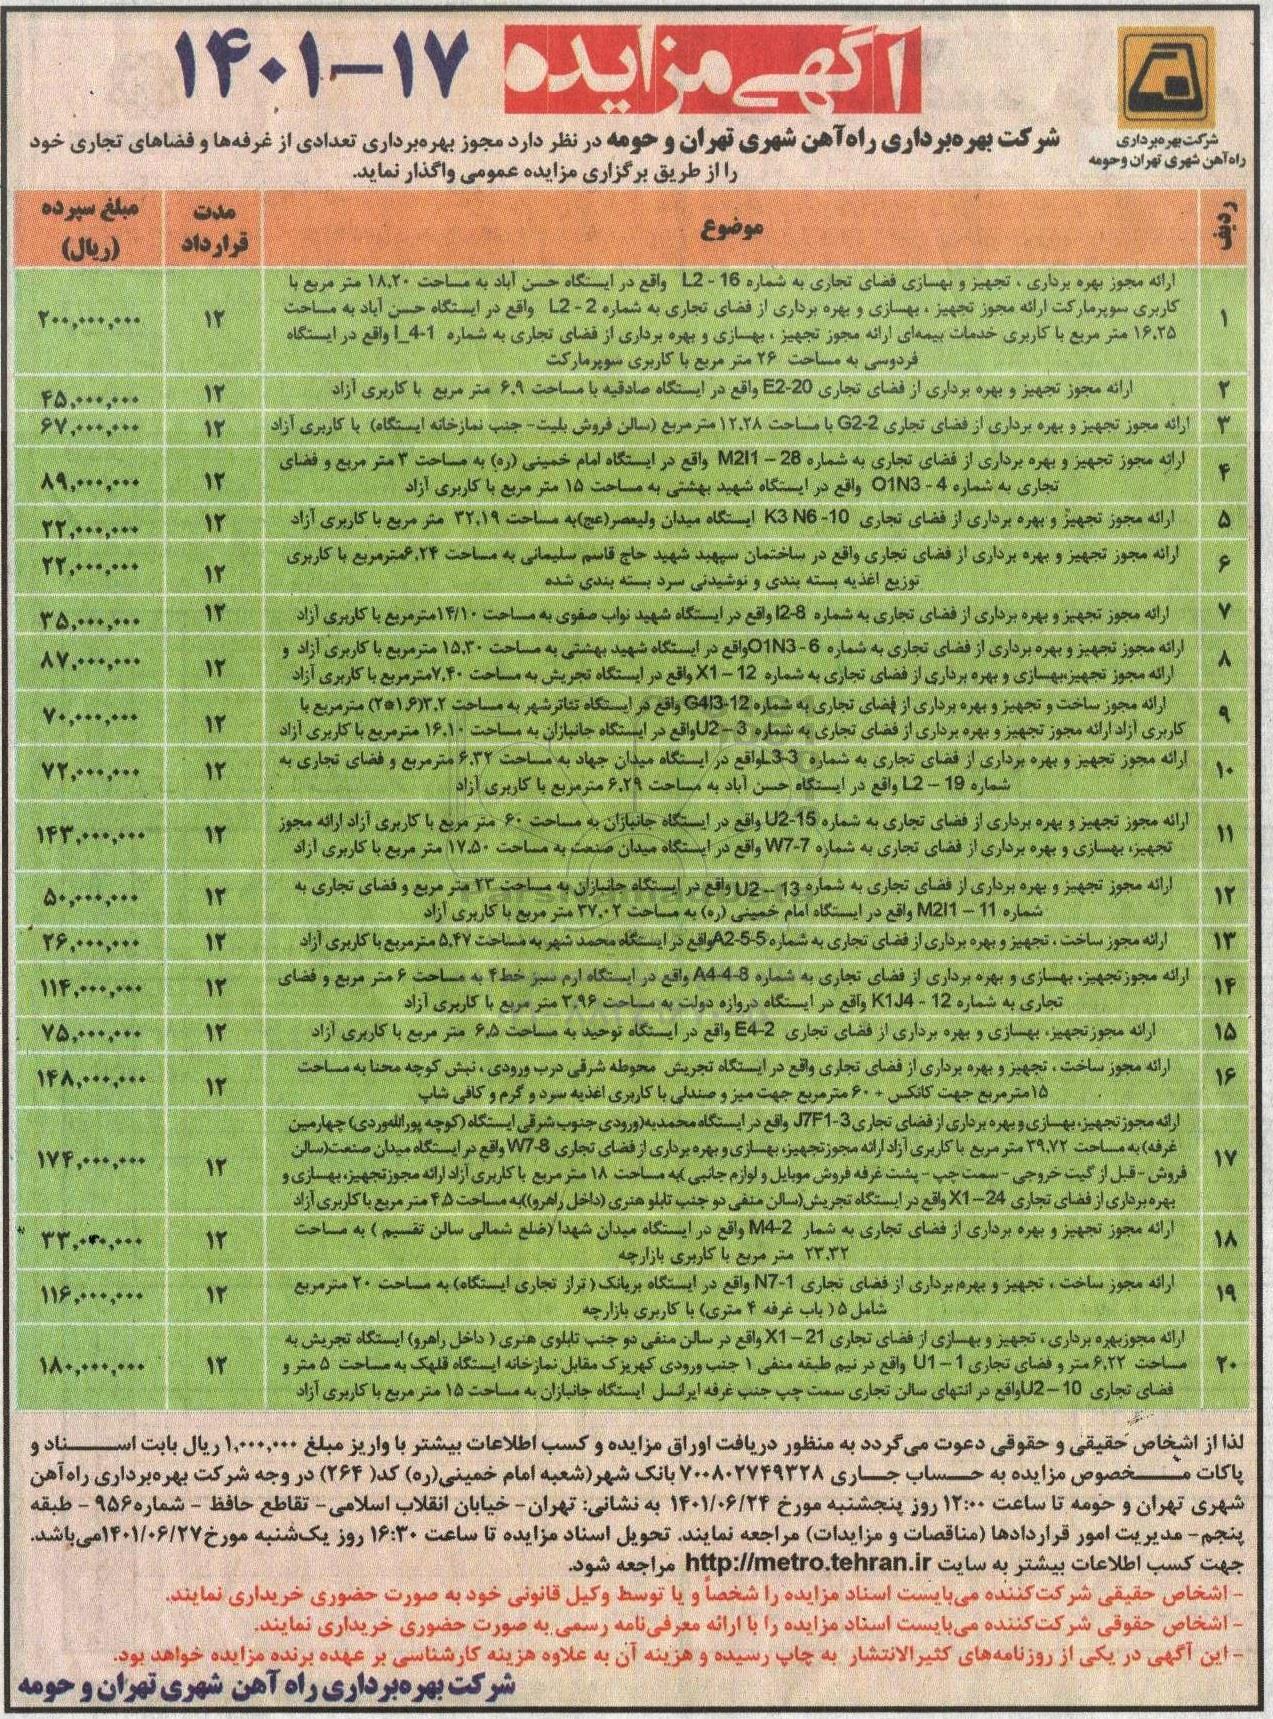 آگهی مزایده ۱۷-۱۴۰۱
شرکت بهره‌برداری
راه‌آهن شهری تهران و حومه
شرکت بهره‌برداری راه‌آهن شهری تهران و حومه در نظر دارد مجوز بهره‌برداری تعدادی از غرفه‌ها و فضاهای تجاری خود
را از طریق برگزاری مزایده عمومی واگذار نماید.
ردیف موضوع مدت قرارداد مبلغ سپرده (ریال)
۱ ارائه مجوز بهره برداری ، تجهیز و بهسازی فضای تجاری به شماره L2 - 16 واقع در ایستگاه حسن آباد به مساحت ۱۸.۲۰ متر مربع با
کاربری سوپرمارکت ارائه مجوز تجهیز ، بهسازی و بهره برداری از فضای تجاری به شماره L2 - 2 واقع در ایستگاه حسن آباد به مساحت
۱۶.۲۵ متر مربع با کاربری خدمات بیمه‌ای ارائه مجوز تجهیز ، بهسازی و بهره برداری از فضای تجاری به شماره I_4-1 واقع در ایستگاه
فردوسی به مساحت ۲۶ متر مربع با کاربری سوپرمارکت ۱۲ ۲۰۰,۰۰۰,۰۰۰
۲ ارائه مجوز تجهیز و بهره برداری از فضای تجاری E2-20 واقع در ایستگاه صادقیه با مساحت ۶.۹ متر مربع با کاربری آزاد ۱۲ ۴۵,۰۰۰,۰۰۰
۳ ارائه مجوز تجهیز و بهره برداری از فضای تجاری G2-2 با مساحت ۱۲.۲۸ متر مربع (سالن فروش بلیت- جنب نمازخانه ایستگاه) با کاربری آزاد ۱۲ ۶۷,۰۰۰,۰۰۰
۴ ارائه مجوز تجهیز و بهره برداری از فضای تجاری به شماره M2I1 – 28 واقع در ایستگاه امام خمینی (ره) به مساحت ۳ متر مربع و فضای
تجاری به شماره O1N3 - 4 واقع در ایستگاه شهید بهشتی به مساحت ۱۵ متر مربع با کاربری آزاد ۱۲ ۸۹,۰۰۰,۰۰۰
۵ ارائه مجوز تجهیز و بهره برداری از فضای تجاری K3 N6 -10 ایستگاه میدان ولیعصر(عج)به مساحت ۳۲.۱۹ متر مربع با کاربری آزاد ۱۲ ۲۲,۰۰۰,۰۰۰
۶ ارائه مجوز تجهیز و بهره برداری از فضای تجاری واقع در ساختمان سپهبد شهید حاج قاسم سلیمانی به مساحت ۶.۲۴مترمربع با کاربری
توزیع اغذیه بسته بندی و نوشیدنی سرد بسته بندی شده ۱۲ ۲۲,۰۰۰,۰۰۰
۷ ارائه مجوز تجهیز و بهره برداری از فضای تجاری به شماره I2-8 واقع در ایستگاه شهید نواب صفوی به مساحت ۱۴/۱۰مترمربع با کاربری آزاد ۱۲ ۳۵,۰۰۰,۰۰۰
۸ ارائه مجوز تجهیز و بهره برداری از فضای تجاری به شماره O1N3 - 6واقع در ایستگاه شهید بهشتی به مساحت ۱۵.۳۰ مترمربع با کاربری آزاد و
ارائه مجوز تجهیز،بهسازی و بهره برداری از فضای تجاری به شماره X1 – 12 واقع در ایستگاه تجریش به مساحت ۷.۴۰مترمربع با کاربری آزاد ۱۲ ۸۷,۰۰۰,۰۰۰
۹ ارائه مجوز ساخت و تجهیز و بهره برداری از فضای تجاری به شماره G4I3-12 واقع در ایستگاه تئاترشهر به مساحت ۳.۲(۱.۶*۲) مترمربع با
کاربری آزاد ارائه مجوز تجهیز و بهره برداری از فضای تجاری به شماره U2 – 3واقع در ایستگاه جانبازان به مساحت ۱۶.۱۰ مترمربع با کاربری آزاد ۱۲ ۷۰,۰۰۰,۰۰۰
۱۰ ارائه مجوز تجهیز و بهره برداری از فضای تجاری به شماره L3-3واقع در ایستگاه میدان جهاد به مساحت ۶.۳۲ مترمربع و فضای تجاری به
شماره L2 – 19 واقع در ایستگاه حسن آباد به مساحت ۶.۲۹ مترمربع با کاربری آزاد ۱۲ ۷۲,۰۰۰,۰۰۰
۱۱ ارائه مجوز تجهیز و بهره برداری از فضای تجاری به شماره U2-15 واقع در ایستگاه جانبازان به مساحت ۶۰ متر مربع با کاربری آزاد ارائه مجوز
تجهیز، بهسازی و بهره برداری از فضای تجاری به شماره W7-7 واقع در ایستگاه میدان صنعت به مساحت ۱۷.۵۰ متر مربع با کاربری آزاد ۱۲ ۱۴۳,۰۰۰,۰۰۰
۱۲ ارائه مجوز تجهیز و بهره برداری از فضای تجاری به شماره U2 – 13 واقع در ایستگاه جانبازان به مساحت ۲۳ متر مربع و فضای تجاری به
شماره M2I1 – 11 واقع در ایستگاه امام خمینی (ره) به مساحت ۳۷.۰۲ متر مربع با کاربری آزاد ۱۲ ۵۰,۰۰۰,۰۰۰
۱۳ ارائه مجوز ساخت ، تجهیز و بهره برداری از فضای تجاری به شماره A2-5-5واقع در ایستگاه محمد شهر به مساحت ۵.۴۷ مترمربع با کاربری آزاد ۱۲ ۲۶,۰۰۰,۰۰۰
۱۴ ارائه مجوزتجهیز، بهسازی و بهره برداری از فضای تجاری به شماره A4-4-8 واقع در ایستگاه ارم سبز خط۴ به مساحت ۶ متر مربع و فضای
تجاری به شماره K1J4 - 12 واقع در ایستگاه دروازه دولت به مساحت ۳.۹۶ متر مربع با کاربری آزاد ۱۲ ۱۱۴,۰۰۰,۰۰۰
۱۵ ارائه مجوزتجهیز، بهسازی و بهره برداری از فضای تجاری E4-2 واقع در ایستگاه توحید به مساحت ۶.۵ متر مربع با کاربری آزاد ۱۲ ۷۵,۰۰۰,۰۰۰
۱۶ ارائه مجوز ساخت ، تجهیز و بهره برداری از فضای تجاری واقع در ایستگاه تجریش محوطه شرقی درب ورودی ، نبش کوچه محنا به مساحت
۱۵مترمربع جهت کانکس + ۶۰ مترمربع جهت میز و صندلی با کاربری اغذیه سرد و گرم و کافی شاپ ۱۲ ۱۴۸,۰۰۰,۰۰۰
۱۷ ارائه مجوزتجهیز، بهسازی و بهره برداری از فضای تجاری J7F1-3 واقع در ایستگاه محمدیه(ورودی جنوب شرقی ایستگاه (کوچه پورالله‌وردی) چهارمین
غرفه) به مساحت ۳۹.۷۲ متر مربع با کاربری آزاد ارائه مجوزتجهیز، بهسازی و بهره برداری از فضای تجاری W7-8 واقع در ایستگاه میدان صنعت(سالن
فروش - قبل از گیت خروجی - سمت چپ - پشت غرفه فروش موبایل و لوازم جانبی )به مساحت ۱۸ متر مربع با کاربری آزاد ارائه مجوزتجهیز، بهسازی و
بهره برداری از فضای تجاری X1–24 واقع در ایستگاه تجریش(سالن منفی دو جنب تابلو هنری (داخل راهرو))به مساحت ۴.۵ متر مربع با کاربری آزاد ۱۲ ۱۷۴,۰۰۰,۰۰۰
۱۸ ارائه مجوز تجهیز و بهره برداری از فضای تجاری به شمار M4-2 واقع در ایستگاه میدان شهدا (ضلع شمالی سالن تقسیم ) به مساحت
۲۳.۳۲ متر مربع با کاربری بازارچه ۱۲ ۳۳,۰۰۰,۰۰۰
۱۹ ارائه مجوز ساخت ، تجهیز و بهره‌برداری از فضای تجاری N7-1 واقع در ایستگاه بریانک ( تراز تجاری ایستگاه) به مساحت ۲۰ مترمربع
شامل ۵( باب غرفه ۴ متری) با کاربری بازارچه ۱۲ ۱۱۶,۰۰۰,۰۰۰
۲۰ ارائه مجوزبهره برداری ، تجهیز و بهسازی از فضای تجاری X1 – 21 واقع در سالن منفی دو جنب تابلوی هنری ( داخل راهرو) ایستگاه تجریش به
مساحت ۶.۲۲ متر و فضای تجاری U1 – 1 واقع در نیم طبقه منفی ۱ جنب ورودی کهریزک مقابل نمازخانه ایستگاه قلهک به مساحت ۵ متر و
فضای تجاری U2 – 10واقع در انتهای سالن تجاری سمت چپ جنب غرفه ایرانسل ایستگاه جانبازان به مساحت ۱۵ متر مربع با کاربری آزاد ۱۲ ۱۸۰,۰۰۰,۰۰۰
لذا از اشخاص حقیقی و حقوقی دعوت می‌گردد به منظور دریافت اوراق مزایده و کسب اطلاعات بیشتر با واریز مبلغ ۱,۰۰۰,۰۰۰ ریال بابت اسناد و
پاکات مخصوص مزایده به حساب جاری ۷۰۰۸۰۲۷۴۹۳۲۸ بانک شهر(شعبه امام خمینی(ره) کد( ۲۶۴) در وجه شرکت بهره‌برداری راه‌آهن
شهری تهران و حومه تا ساعت ۱۲:۰۰ روز پنجشنبه مورخ ۱۴۰۱/۰۶/۲۴ به نشانی: تهران- خیابان انقلاب اسلامی- تقاطع حافظ - شماره۹۵۶ - طبقه
پنجم- مدیریت امور قراردادها (مناقصات و مزایدات) مراجعه نمایند. تحویل اسناد مزایده تا ساعت ۱۶:۳۰ روز یک‌شنبه مورخ۱۴۰۱/۰۶/۲۷می‌باشد.
جهت کسب اطلاعات بیشتر به سایت http://metro.tehran.ir مراجعه شود.
- اشخاص حقیقی شرکت‌کننده می‌بایست اسناد مزایده را شخصاً و یا توسط وکیل قانونی خود به صورت حضوری خریداری نمایند.
- اشخاص حقوقی شرکت‌کننده می‌بایست اسناد مزایده را با ارائه معرفی‌نامه رسمی به صورت حضوری خریداری نمایند.
- این آگهی در یکی از روزنامه‌های کثیرالانتشار به چاپ رسیده و هزینه آن به علاوه هزینه کارشناسی بر عهده برنده مزایده خواهد بود.
شرکت بهره‌برداری راه آهن شهری تهران و حومه